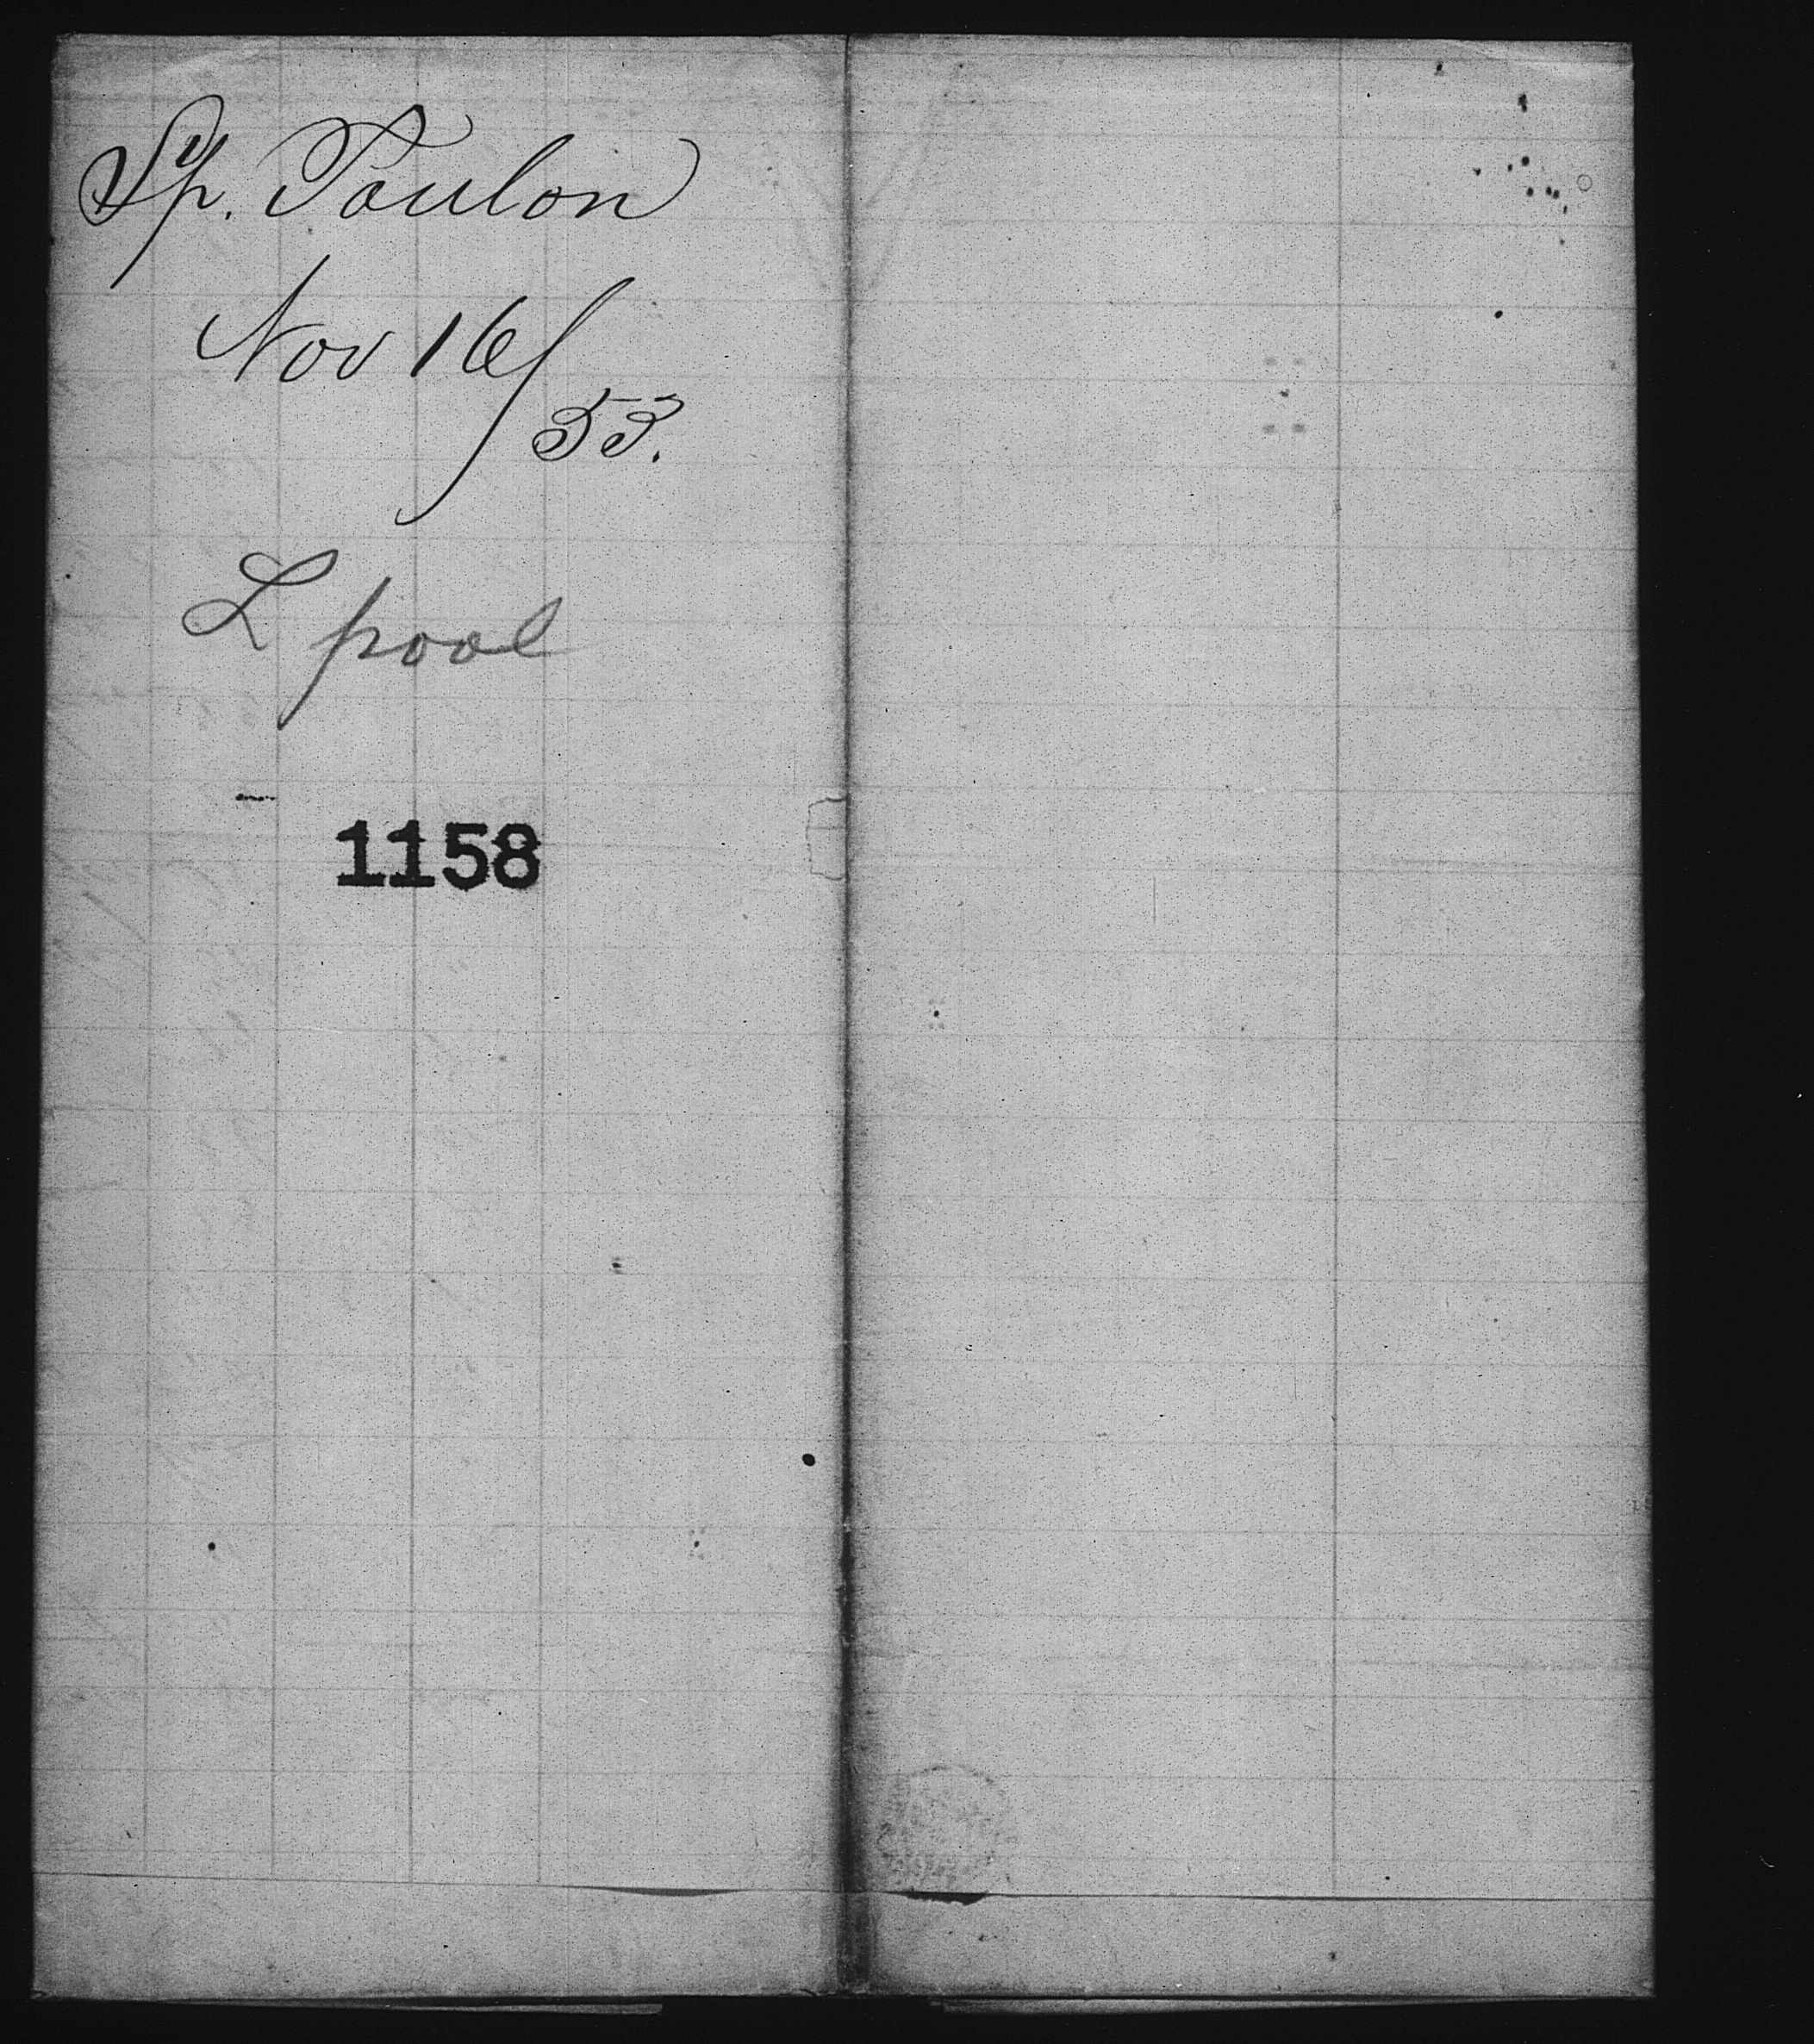 Sp. Toulon
Nov 16/53.
L pool
1158